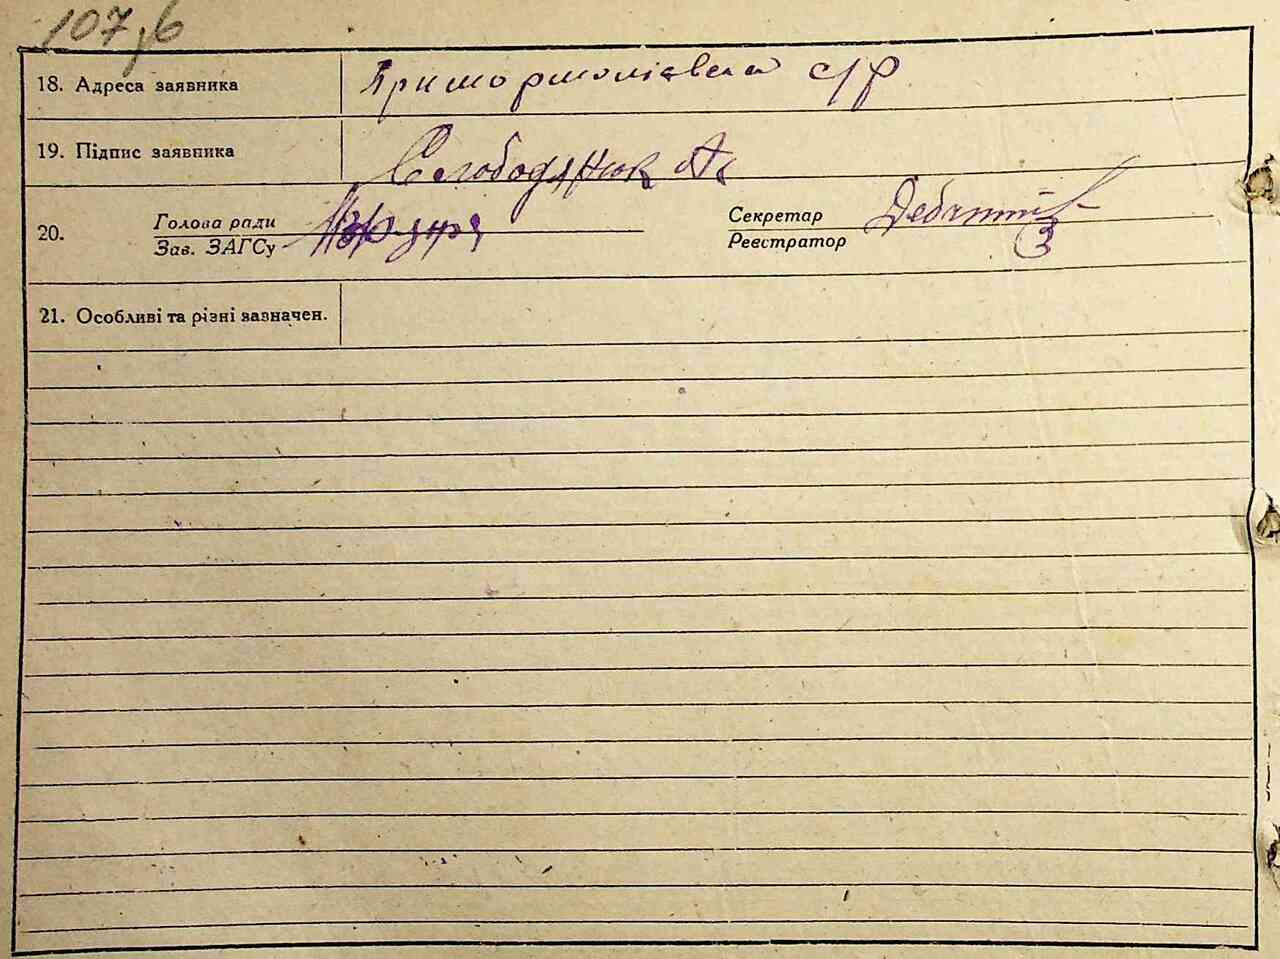 107,б
18. Адреса заявника с/р
19. Підпис заявника Слободянюк А
20. Голова ради
Зав. ЗАГСу
Секретар
Реєстратор
21. Особливі та різні зазначен.